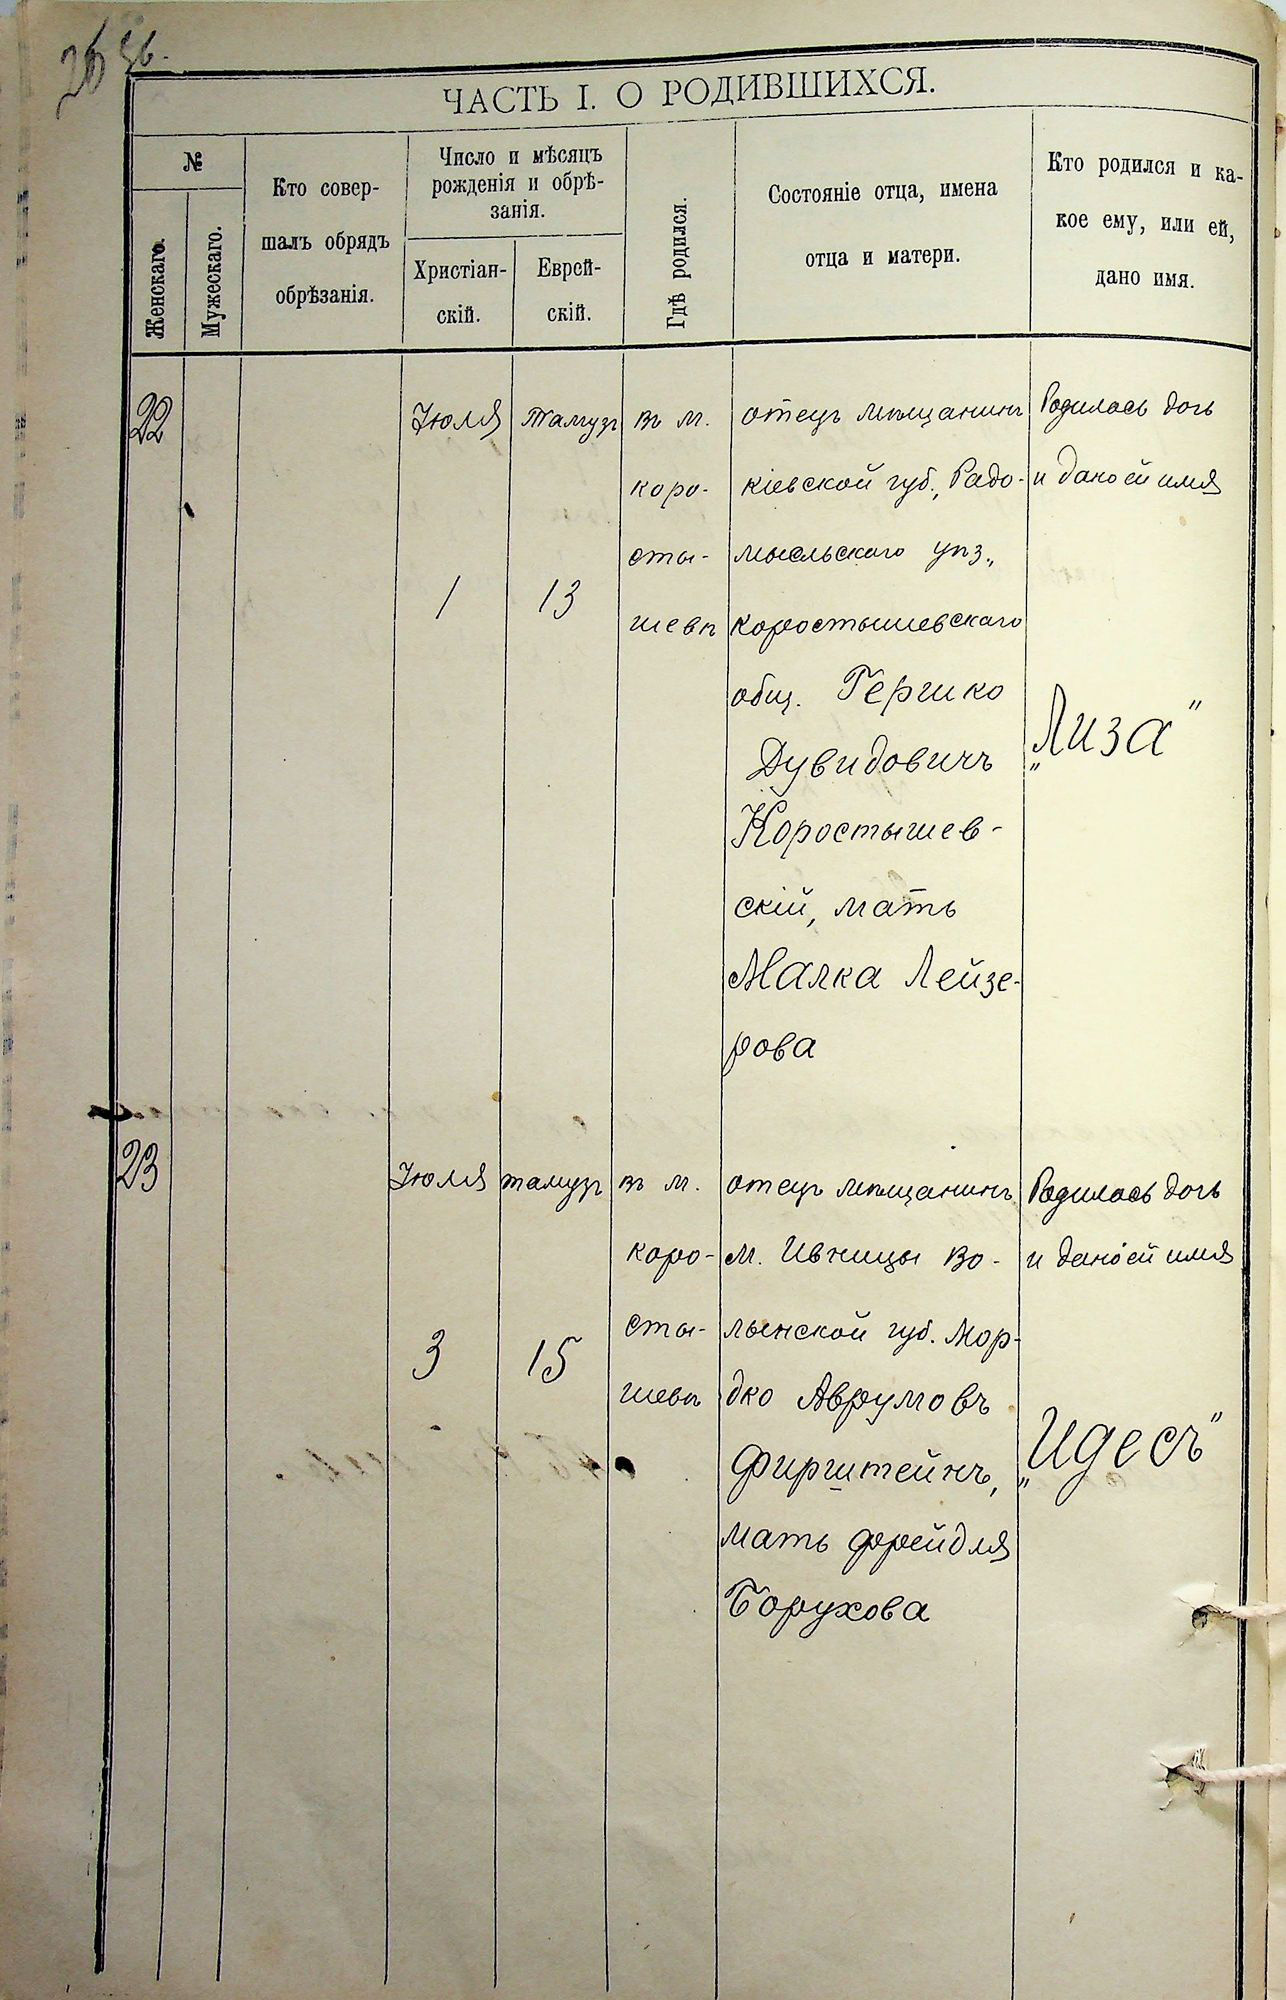 26 зв.
ЧАСТЬ I. О РОДИВШИХСЯ.
№
Женскаго.
Мужескаго.
Кто совер-
шалъ обрядъ
обрѣзанія.
Число и мѣсяцъ
рожденія и обрѣ-
занія.
Христіан-
скій.
Еврей-
скій.
Гдѣ родился.
Состояніе отца, имена
отца и матери.
Кто родился и ка-
кое ему, или ей,
дано имя.
22
Іюля
1
Тамузъ
13
въ м.
коро-
сты-
шевѣ
отецъ мѣщанинъ
кіевской губ., Радо-
мысльскаго уѣз.,
коростышевскаго
общ. Гершко
Дувидовичъ
Коростышев-
скій, мать
Малка Лейзе-
рова
Родилась дочь
и дано ей имя
„Лиза"
23
Іюля
3
тамузъ
15
въ м.
коро-
сты-
шевѣ
отецъ мѣщанинъ
м. Ивницы Во-
лынской губ. Мор-
дко Аврумовъ
Фирштейнъ,
мать Фрейдля
Борухова
Родилась дочь
и дано ей имя
„Идесъ"